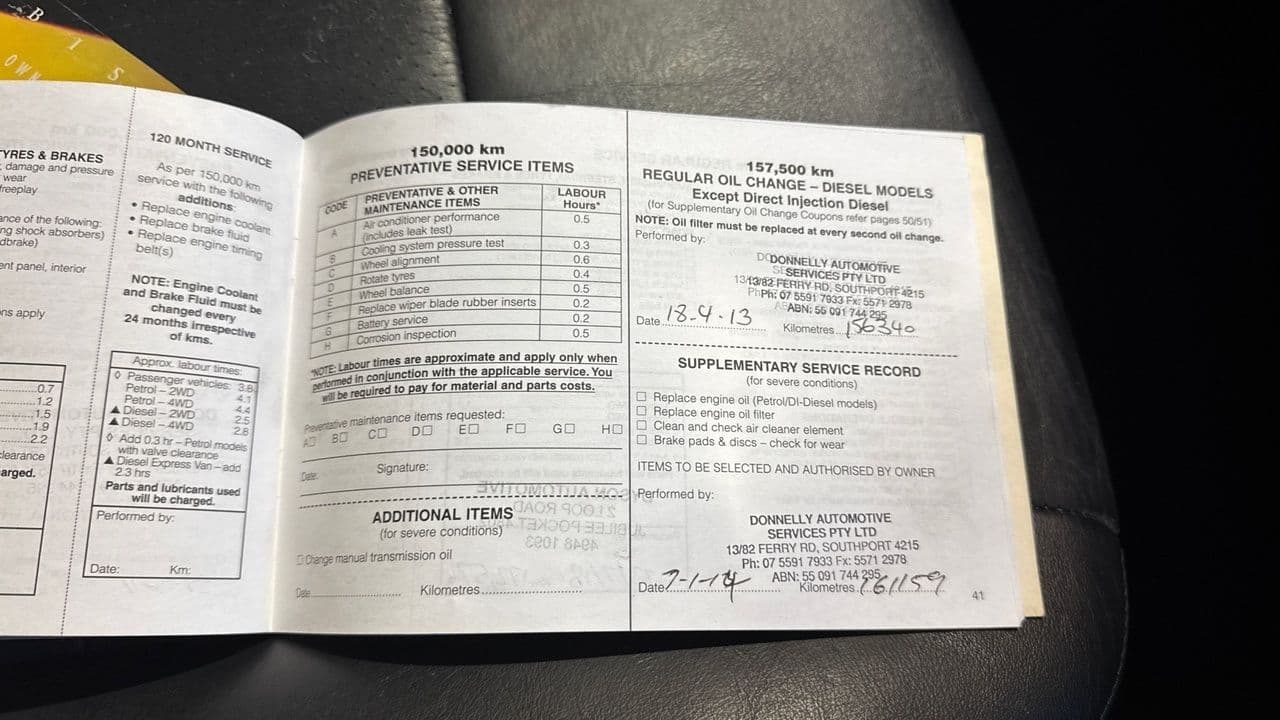 B
I S
OWN
TYRES & BRAKES
damage and pressure
wear
freeplay
ance of the following:
ng shock absorbers)
dbrake)
ent panel, interior
ns apply
0.7
1.2
1.5
1.9
2.2
clearance
arged.
120 MONTH SERVICE
As per 150,000 km
service with the following
additions:
• Replace engine coolant
• Replace brake fluid
• Replace engine timing
belt(s)
NOTE: Engine Coolant
and Brake Fluid must be
changed every
24 months irrespective
of kms.
Approx. labour times:
◊ Passenger vehicles: 3.8
Petrol – 2WD 4.1
Petrol – 4WD 4.4
▲ Diesel – 2WD 2.5
▲ Diesel – 4WD 2.8
◊ Add 0.3 hr – Petrol models
with valve clearance
▲ Diesel Express Van – add
2.3 hrs
Parts and lubricants used
will be charged.
Performed by:
Date: Km:
150,000 km
PREVENTATIVE SERVICE ITEMS
CODE PREVENTATIVE & OTHER MAINTENANCE ITEMS LABOUR Hours*
A Air conditioner performance (includes leak test) 0.5
B Cooling system pressure test 0.3
C Wheel alignment 0.6
D Rotate tyres 0.4
E Wheel balance 0.5
F Replace wiper blade rubber inserts 0.2
G Battery service 0.2
H Corrosion inspection 0.5
*NOTE: Labour times are approximate and apply only when
performed in conjunction with the applicable service. You
will be required to pay for material and parts costs.
Preventative maintenance items requested:
A☐ B☐ C☐ D☐ E☐ F☐ G☐ H☐
Date: Signature:
ADDITIONAL ITEMS
(for severe conditions)
☐ Change manual transmission oil
Date Kilometres
157,500 km
REGULAR OIL CHANGE – DIESEL MODELS
Except Direct Injection Diesel
(for Supplementary Oil Change Coupons refer pages 50/51)
NOTE: Oil filter must be replaced at every second oil change.
Performed by:
DONNELLY AUTOMOTIVE
SERVICES PTY LTD
13/82 FERRY RD, SOUTHPORT 4215
Ph: 07 5591 7933 Fx: 5571 2978
ABN: 55 091 744 295
Date 18-4-13 Kilometres 156340
SUPPLEMENTARY SERVICE RECORD
(for severe conditions)
☐ Replace engine oil (Petrol/DI-Diesel models)
☐ Replace engine oil filter
☐ Clean and check air cleaner element
☐ Brake pads & discs – check for wear
ITEMS TO BE SELECTED AND AUTHORISED BY OWNER
Performed by:
DONNELLY AUTOMOTIVE
SERVICES PTY LTD
13/82 FERRY RD, SOUTHPORT 4215
Ph: 07 5591 7933 Fx: 5571 2978
ABN: 55 091 744 295
Date 7-1-14 Kilometres 161159
41